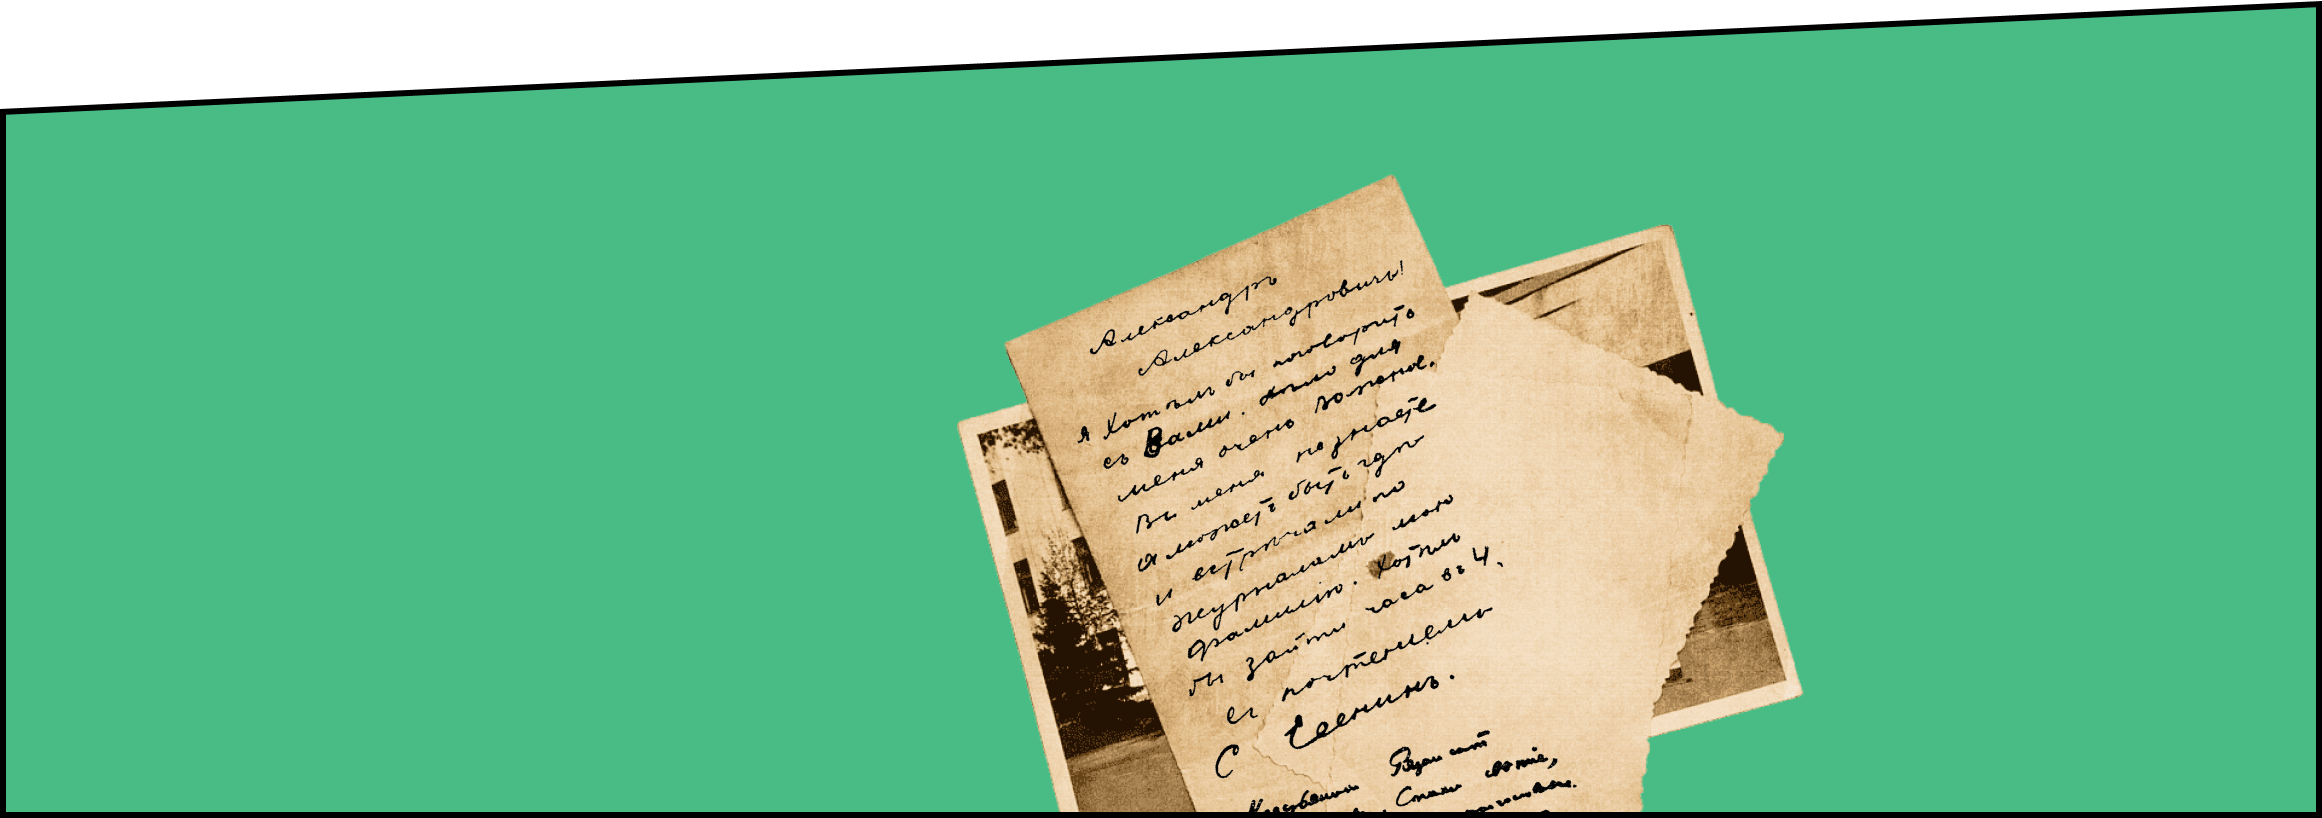 Александръ
Александровичъ!
Я хотѣлъ бы поговорить
съ Вами. Дѣло для
меня очень важное.
Вы меня не знаете
а можетъ быть гдѣ
и встрѣчали по
журналамъ мою
фамилію. Хотѣлъ
бы зайти часа въ 4.
Съ почтеніемъ
С Есенинъ.
Крестьянин Рязан
Стихи свѣжіе,